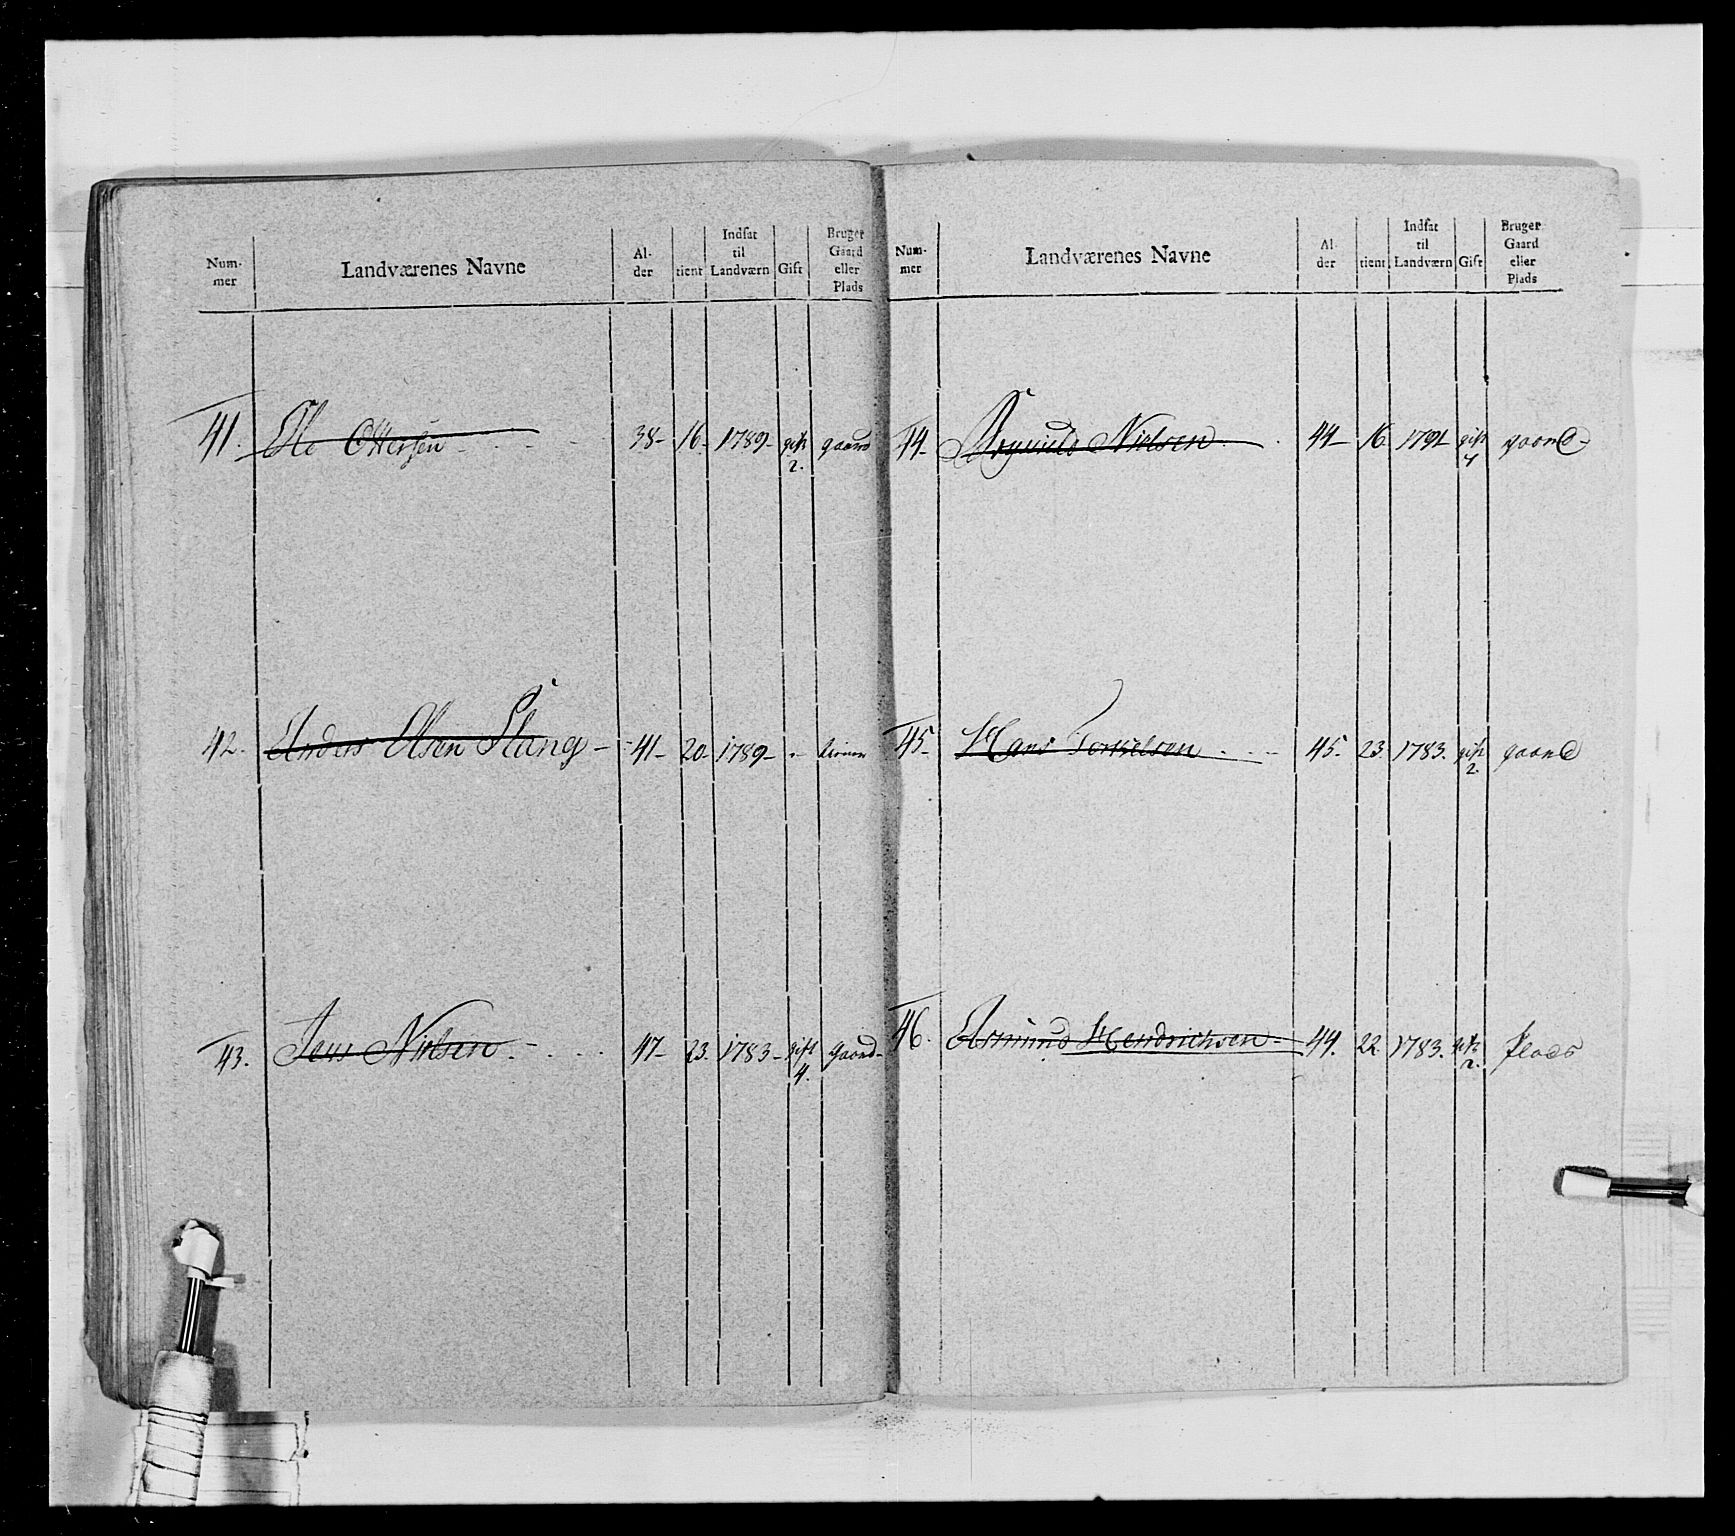 Num-
mer
Landværenes Navne
Al-
der
tient
Indsat
til
Landværn
Gift
Bruger
Gaard
eller
Plads
41. Ole Ottersen 38- 16- 1789- gift 2. gaard
42. Anders Olsen Stang 41- 20- 1789- -
43. Jens Nielsen 47- 23. 1783- gift 4. Gaard-
Num-
mer
Landværenes Navne
Al-
der
tient
Indsat
til
Landværn
Gift
Bruger
Gaard
eller
Plads
44- Nielsen 44- 16 1791 gift 4 gaard-
45- Hans Torkelsen 45. 23. 1783. gift 2. gaard
46. Asmund Hendrichsen 44. 22. 1783. gift 2. Plads